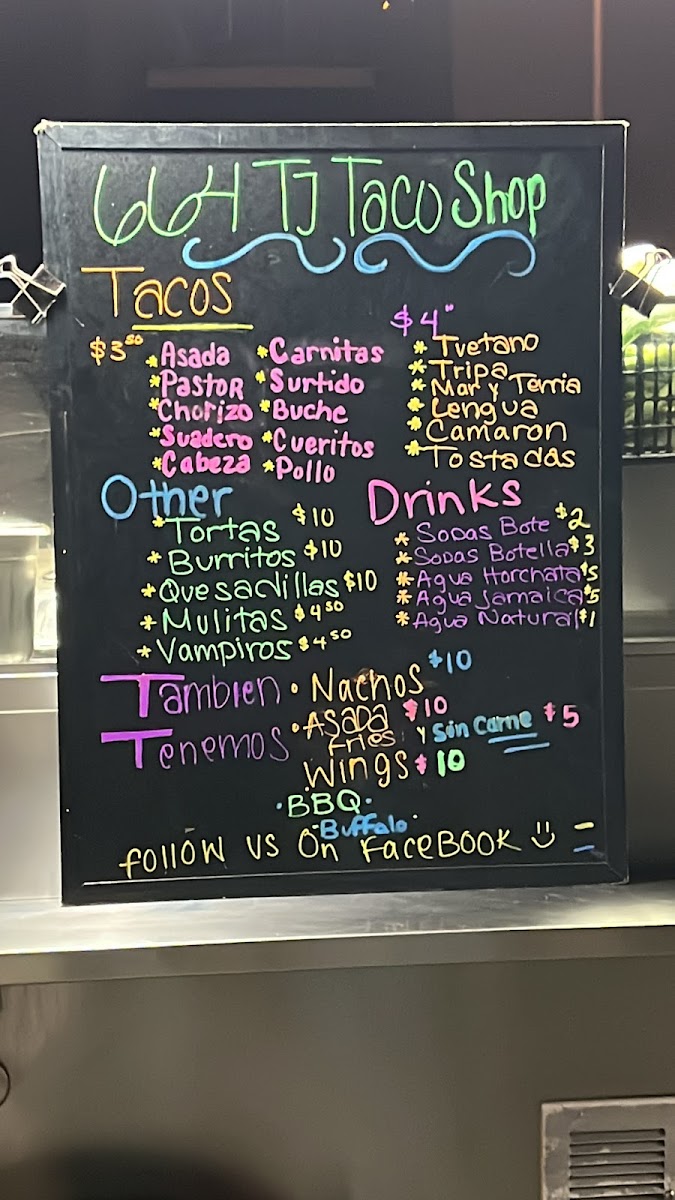 664 TJ Taco Shop
Tacos
$3.50
*Asada
*Pastor
*Chorizo
*Suadero
*Cabeza
*Carnitas
*Surtido
*Buche
*Cueritos
*Pollo
$4"
*Tvetano
*Tripa
*Mar y Terria
*Lengua
*Camaron
*Tostadas
Other
*Tortas $10
*Burritos $10
*Quesadillas $10
*Mulitas $4.50
*Vampiros $4.50
Drinks
*Sodas Bote $2
*Sodas Botella $3
*Agua Horchata $5
*Agua Jamaica $5
*Agua Natural $1
Tambien
Tenemos
•Nachos $10
•Asada Fries $10 y sin Carne $5
Wings $10
•BBQ•
-Buffalo•
Follow us on Facebook